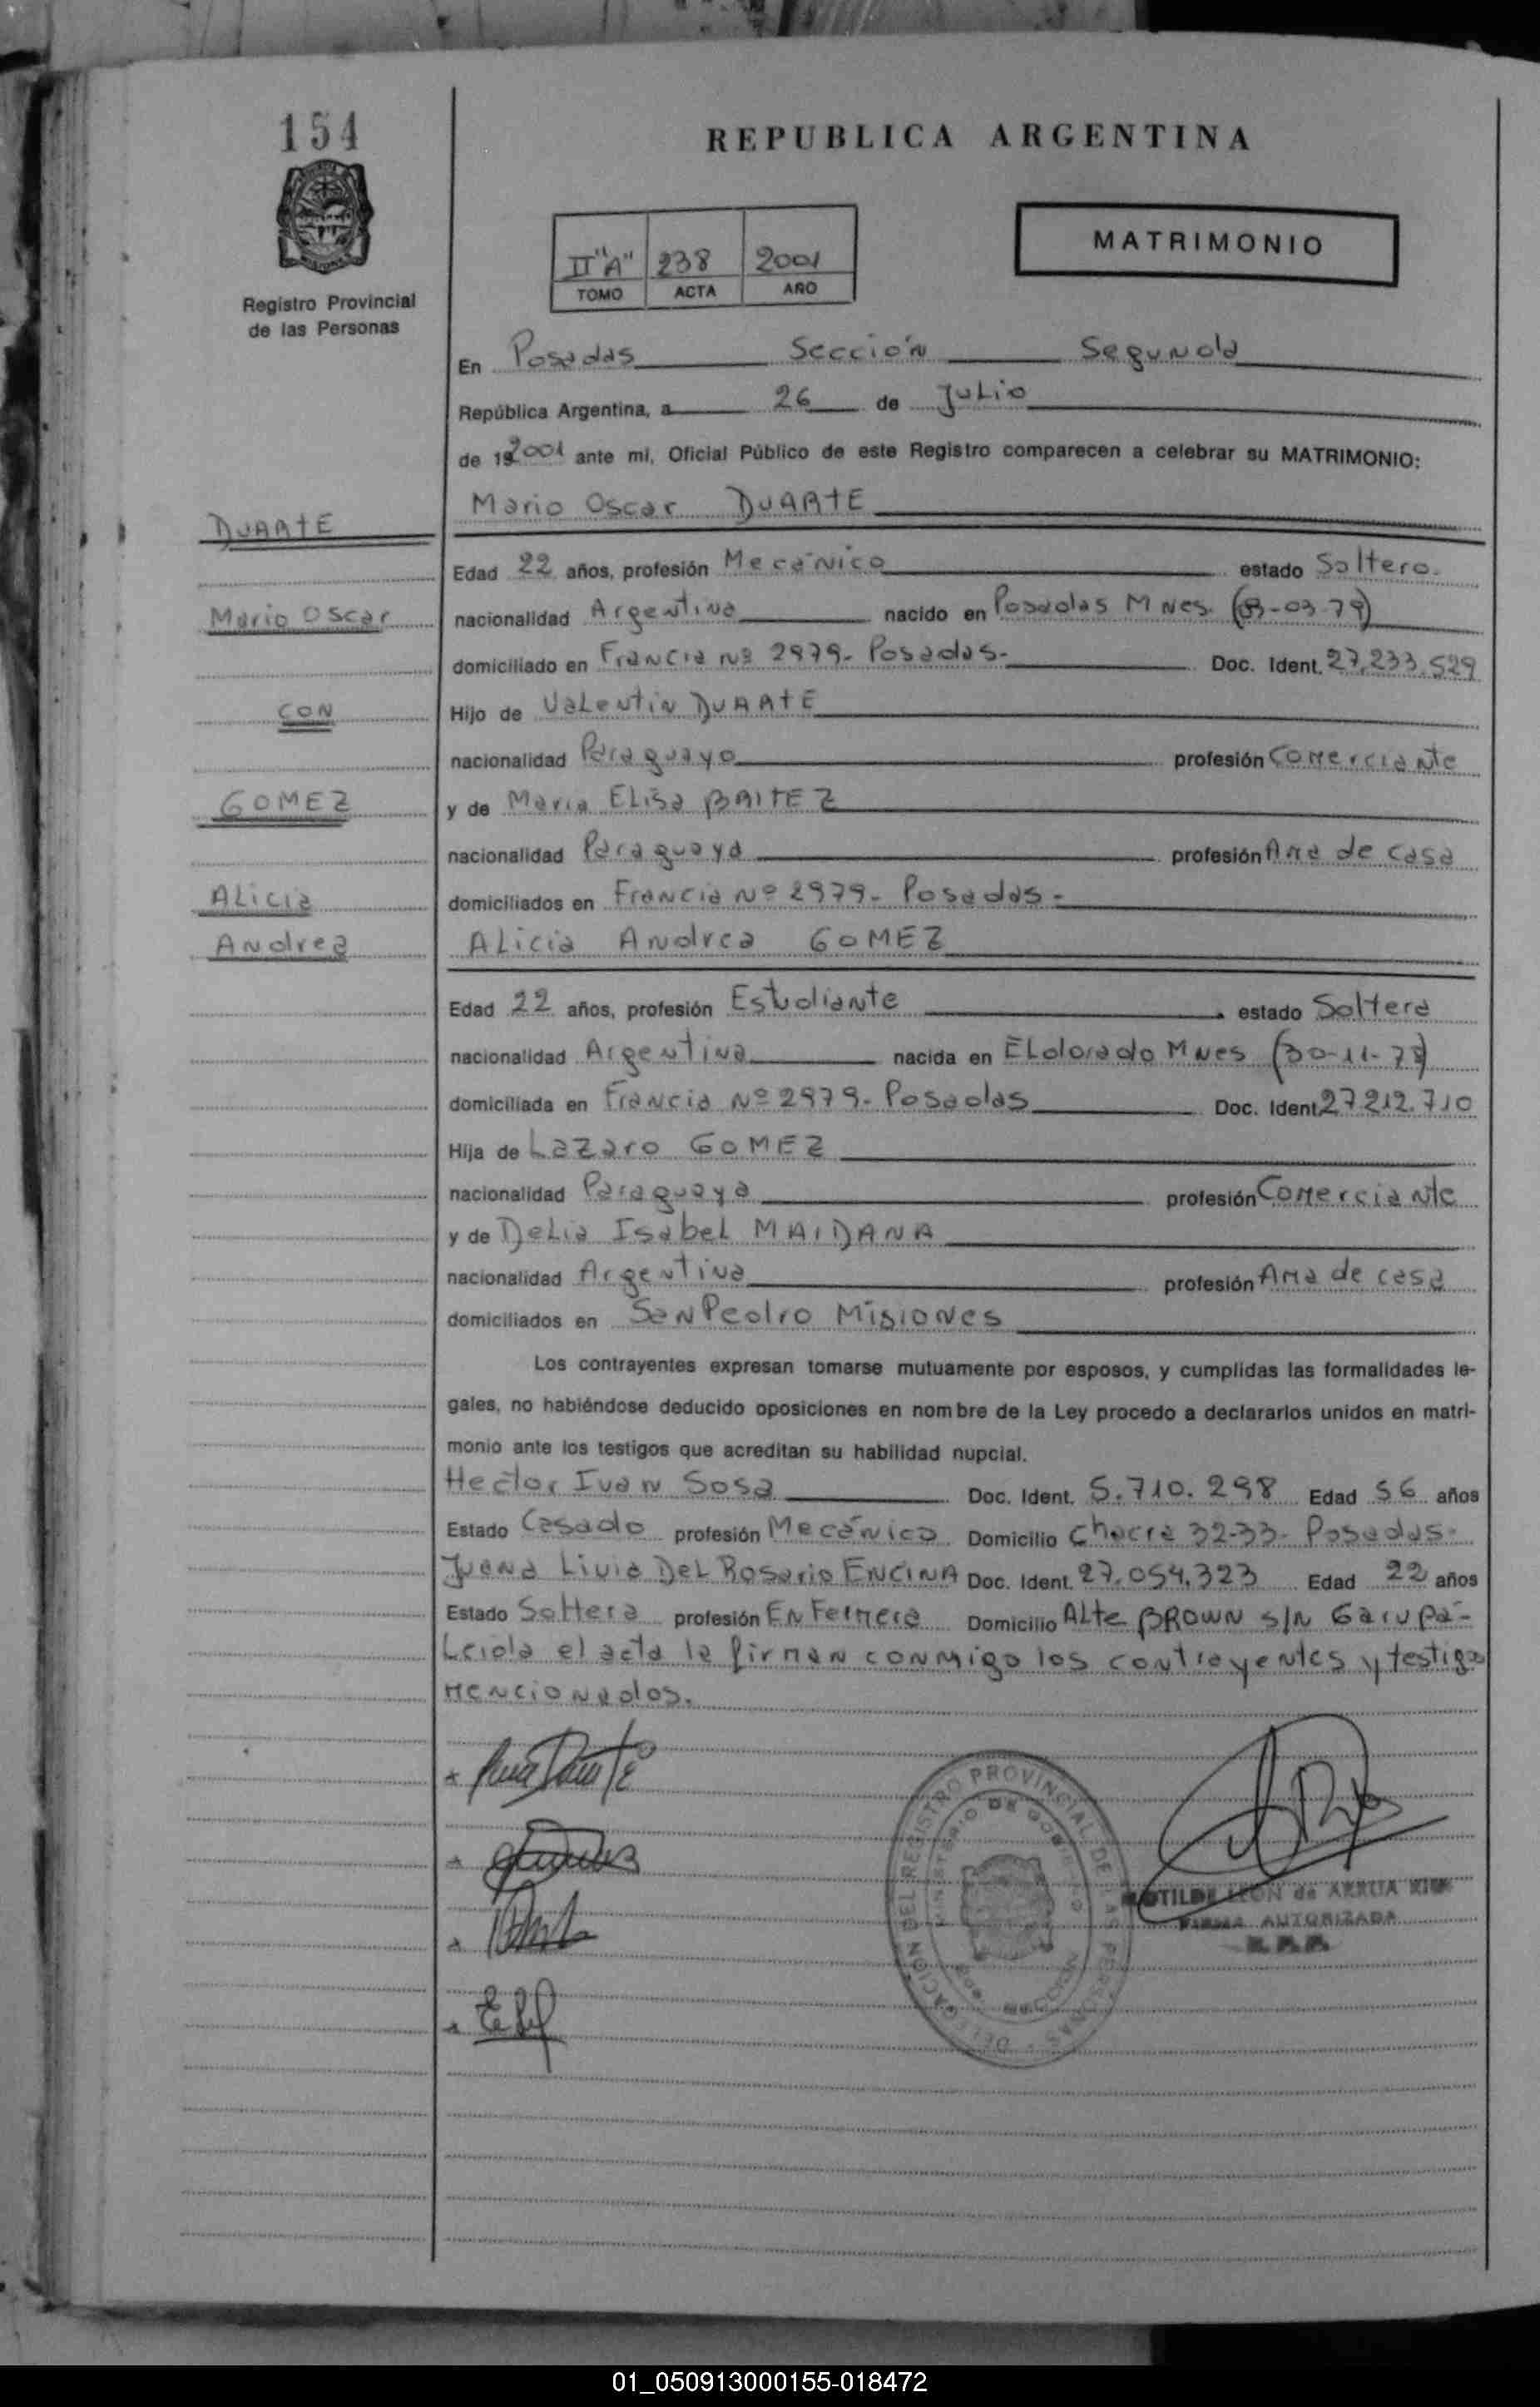 154
REPUBLICA ARGENTINA
MATRIMONIO
II "A" 238 2001
TOMO ACTA AÑO
Registro Provincial
de las Personas
En Posadas Sección Segunda
República Argentina, a 26 de Julio
de 192001 ante mí, Oficial Público de este Registro comparecen a celebrar su MATRIMONIO:
DUARTE
Mario Oscar
CON
GOMEZ
Alicia
Andrea
Mario Oscar DUARTE
Edad 22 años, profesión Mecánico estado Soltero.
nacionalidad Argentina nacido en Posadas Mnes. (-03-79)
domiciliado en Francia Nº 2979- Posadas- Doc. Ident. 27.233.529
Hijo de Valentin DUARTE
nacionalidad Paraguayo profesión Comerciante
y de Maria Elisa BAITEZ
nacionalidad Paraguaya profesión Ama de casa
domiciliados en Francia Nº 2979- Posadas-
Alicia Andrea GOMEZ
Edad 22 años, profesión Estudiante estado Soltera
nacionalidad Argentina nacida en Eldorado Mnes (30-11-78)
domiciliada en Francia Nº 2979- Posadas Doc. Ident. 27.212.710
Hija de Lazaro GOMEZ
nacionalidad Paraguaya profesión Comerciante
y de Delia Isabel MAIDANA
nacionalidad Argentina profesión Ama de casa
domiciliados en San Pedro Misiones
Los contrayentes expresan tomarse mutuamente por esposos, y cumplidas las formalidades le-
gales, no habiéndose deducido oposiciones en nombre de la Ley procedo a declararlos unidos en matri-
monio ante los testigos que acreditan su habilidad nupcial.
Hector Ivan Sosa Doc. Ident. 5.710.298 Edad 56 años
Estado Casado profesión Mecánico Domicilio Chacra 32-33- Posadas-
Juana Livia Del Rosario ENCINA Doc. Ident. 27.054.323 Edad 22 años
Estado Soltera profesión Enfermera Domicilio Alte BROWN s/n Garupá-
Leida el acta la firman conmigo los contrayentes y testigos
mencionados.
DELEGACION DEL REGISTRO PROVINCIAL DE LAS PERSONAS
MINISTERIO DE GOBIERNO
LEON de ARRUA
FIRMA AUTORIZADA
01_050913000155-018472